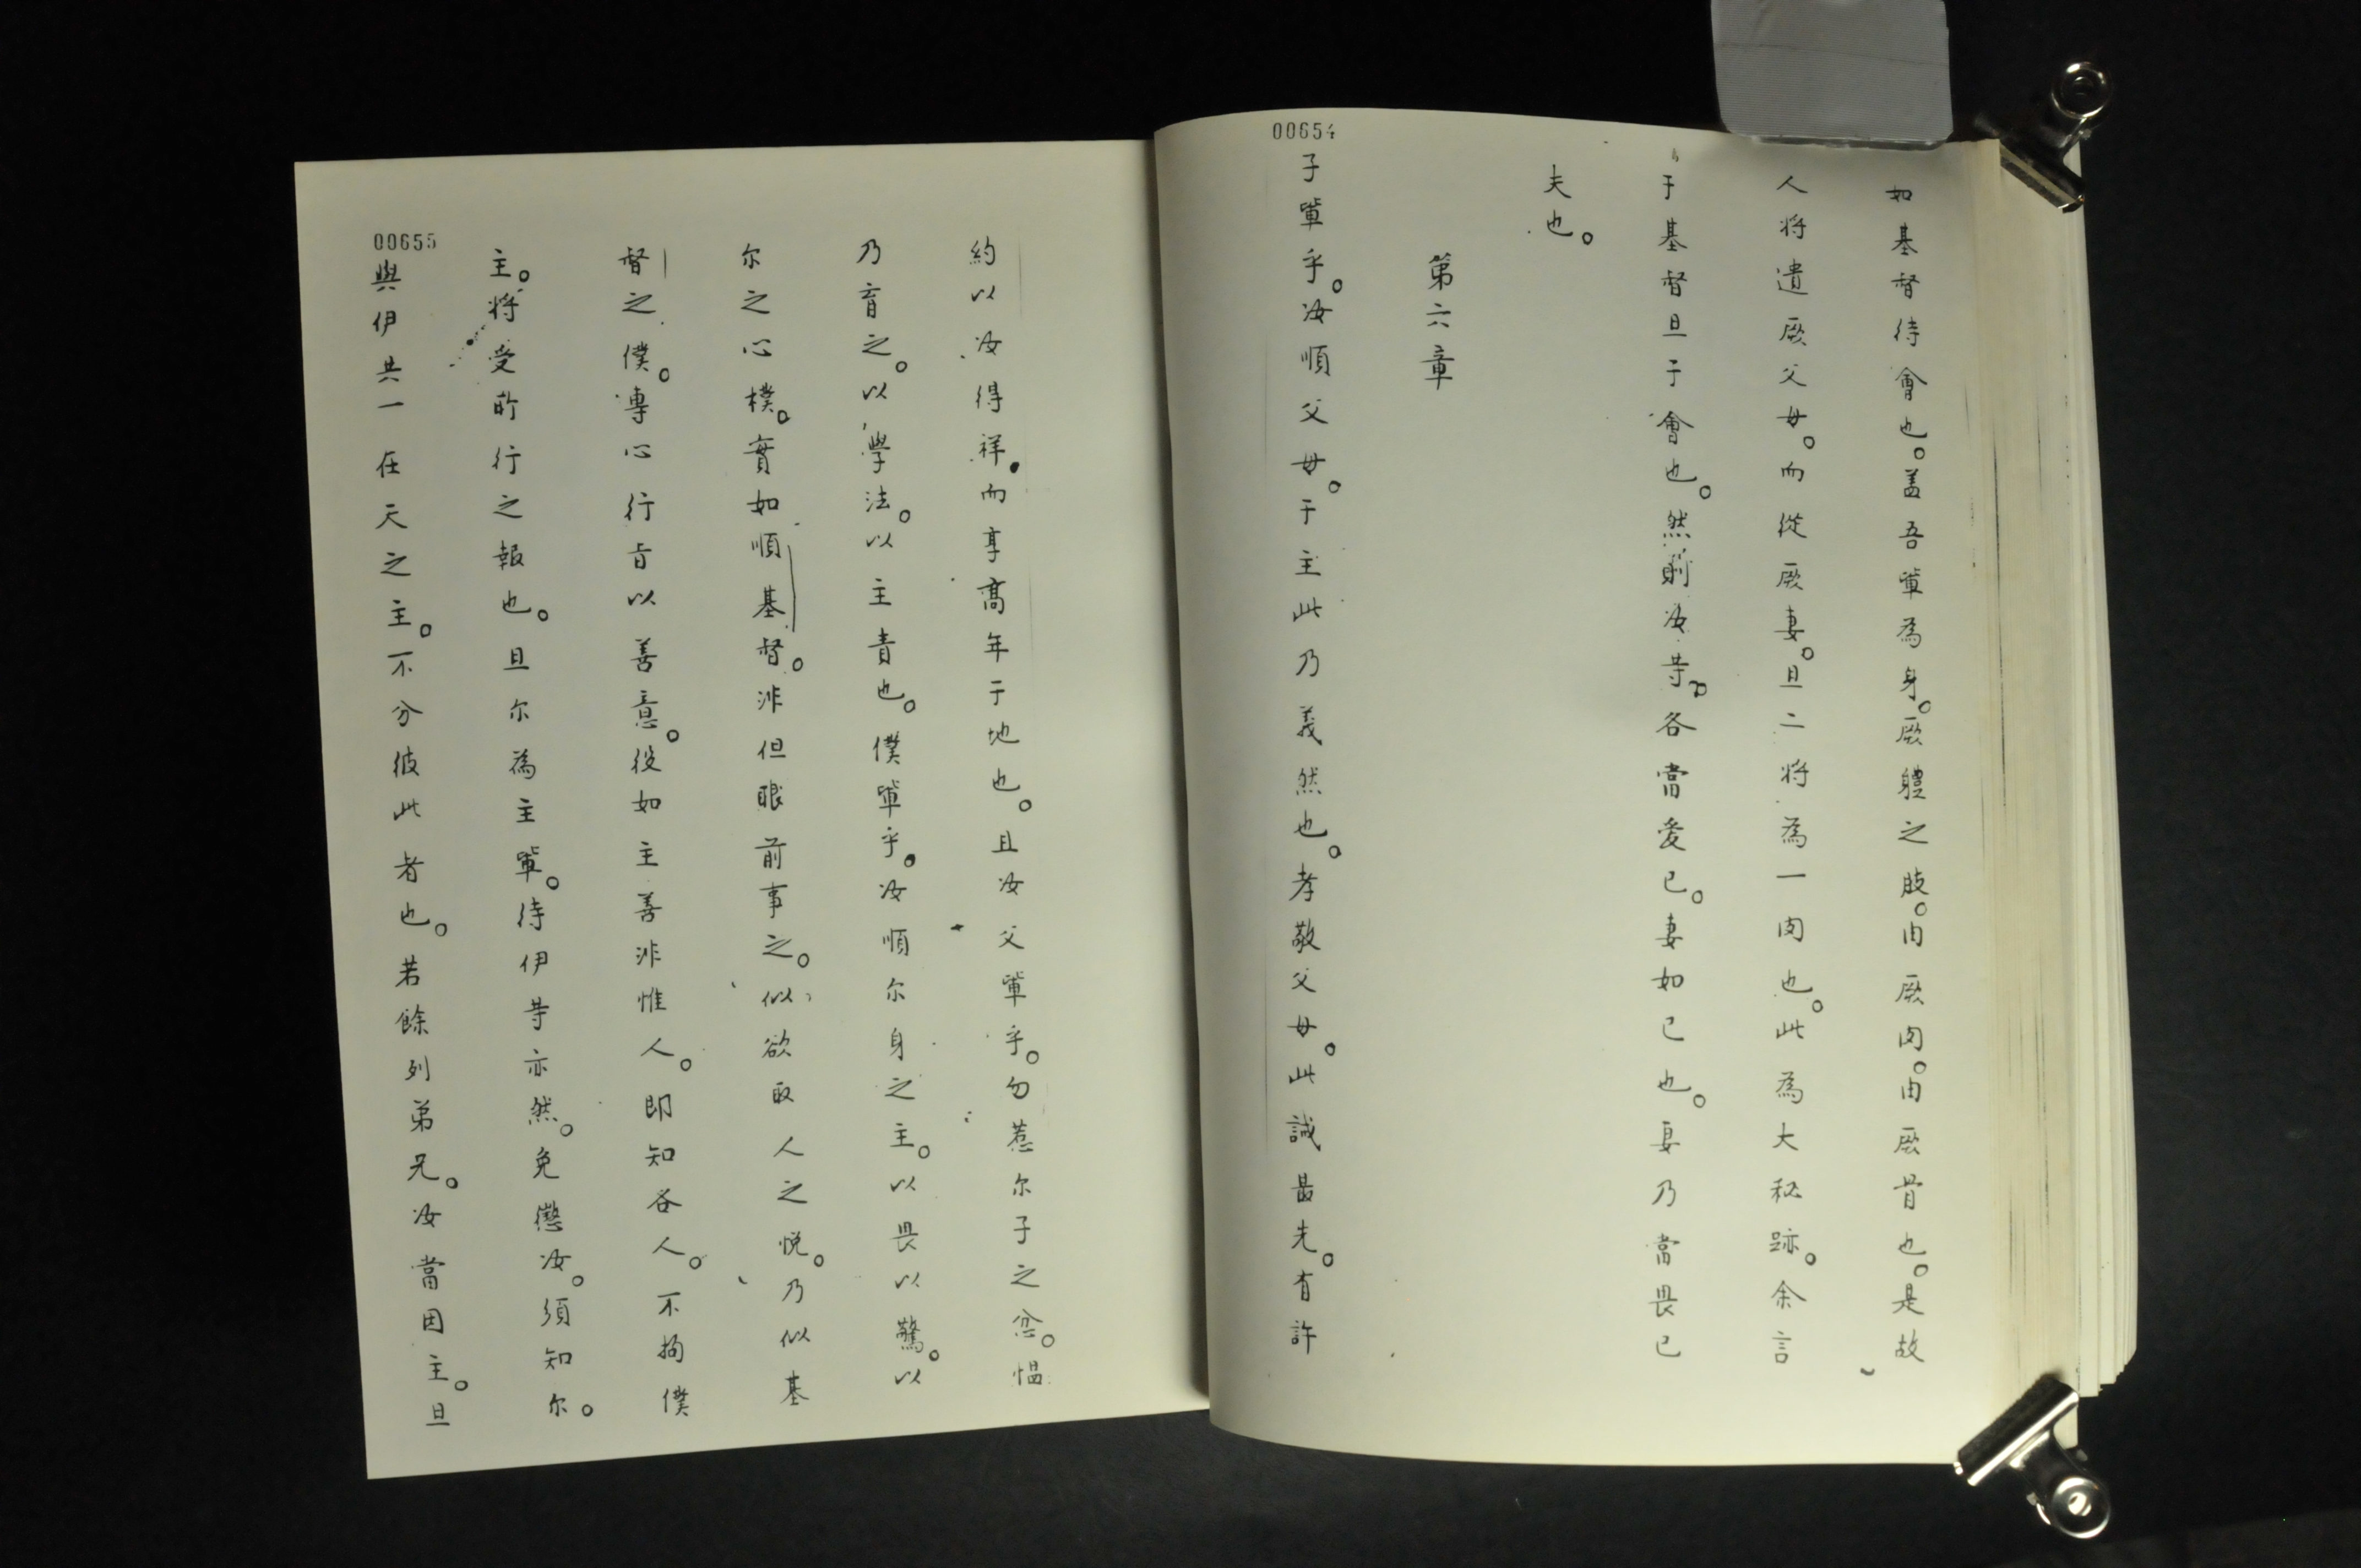 00654
如基督待會也。盖吾軰為身。厥軆之肢。由厥肉。由厥骨也。是故
人將遺厥父母。而從厥妻。且二將為一肉也。此為大秘跡。余言
于基督且于會也。然則汝等。各當爱己。妻如己也。妻乃當畏己
夫也。
第六章
子軰乎。汝順父母。于主此乃義然也。孝敬父母。此誡最先。有許
00655
約以汝得祥。而享髙年于地也。且汝父軰乎。勿惹尔子之忿。愠
乃育之。以學法。以主責也。僕軰乎。汝順尔身之主。以畏以驚。以
尔之心樸。實如順基督。非但眼前事之。似欲取人之悦。乃似基
督之僕。專心行旨以善意。役如主善非惟人。即知各人。不拘僕
主。將受所行之報也。且尔為主軰。待伊等亦然。免懲汝。須知尔。
與伊共一在天之主。不分彼此者也。若餘列弟兄。汝當因主。且